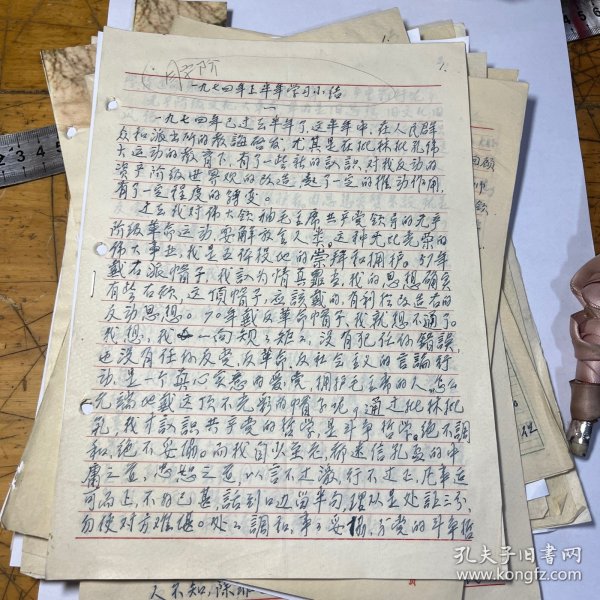 一九七四年上半年学习小结
一
一九七四年已过去半年了,这半年中,在人民群
众和派出所的教诲启发,尤其是在批林批孔伟
大运动的教育下,有了一些新的認識,对我反动的
资产阶级世界观的改造,起了一定的推动作用,
有了一定程度的转变。
过去我对伟大领袖毛主席共产党领导的无产
阶级革命运动,要解放全人类,这种无比光荣的
伟大事业,我是五体投地的崇拜和拥护。57年
戴右派帽子,我認为情真罪当,我的思想确实
有些右倾,这顶帽子,应該戴的,有利於改造右的
反动思想。70年戴反革命帽子,我就想不通了。
我想,我一向规规矩矩,没有犯任何錯誤,
也没有任何反党,反革命,反社会主义的言論行
动,是一个真心实意的爱党,拥护毛主席的人,怎么
无端地戴这顶不光彩的帽子呢。通过批林批
孔,我才認識共产党的哲学,是斗争哲学,绝不調
和,绝不妥协。而我自以来,都迷信孔孟的中
庸之道,忠恕之道,以言不过激,行不过上,凡事适
可而止,不为已甚,話到口边留半句,理从是处让三分,
勿使对方难堪。处处調和,事事妥协,与党的斗争哲
人不知,除非
孔夫子旧书网
www.kongfz.com